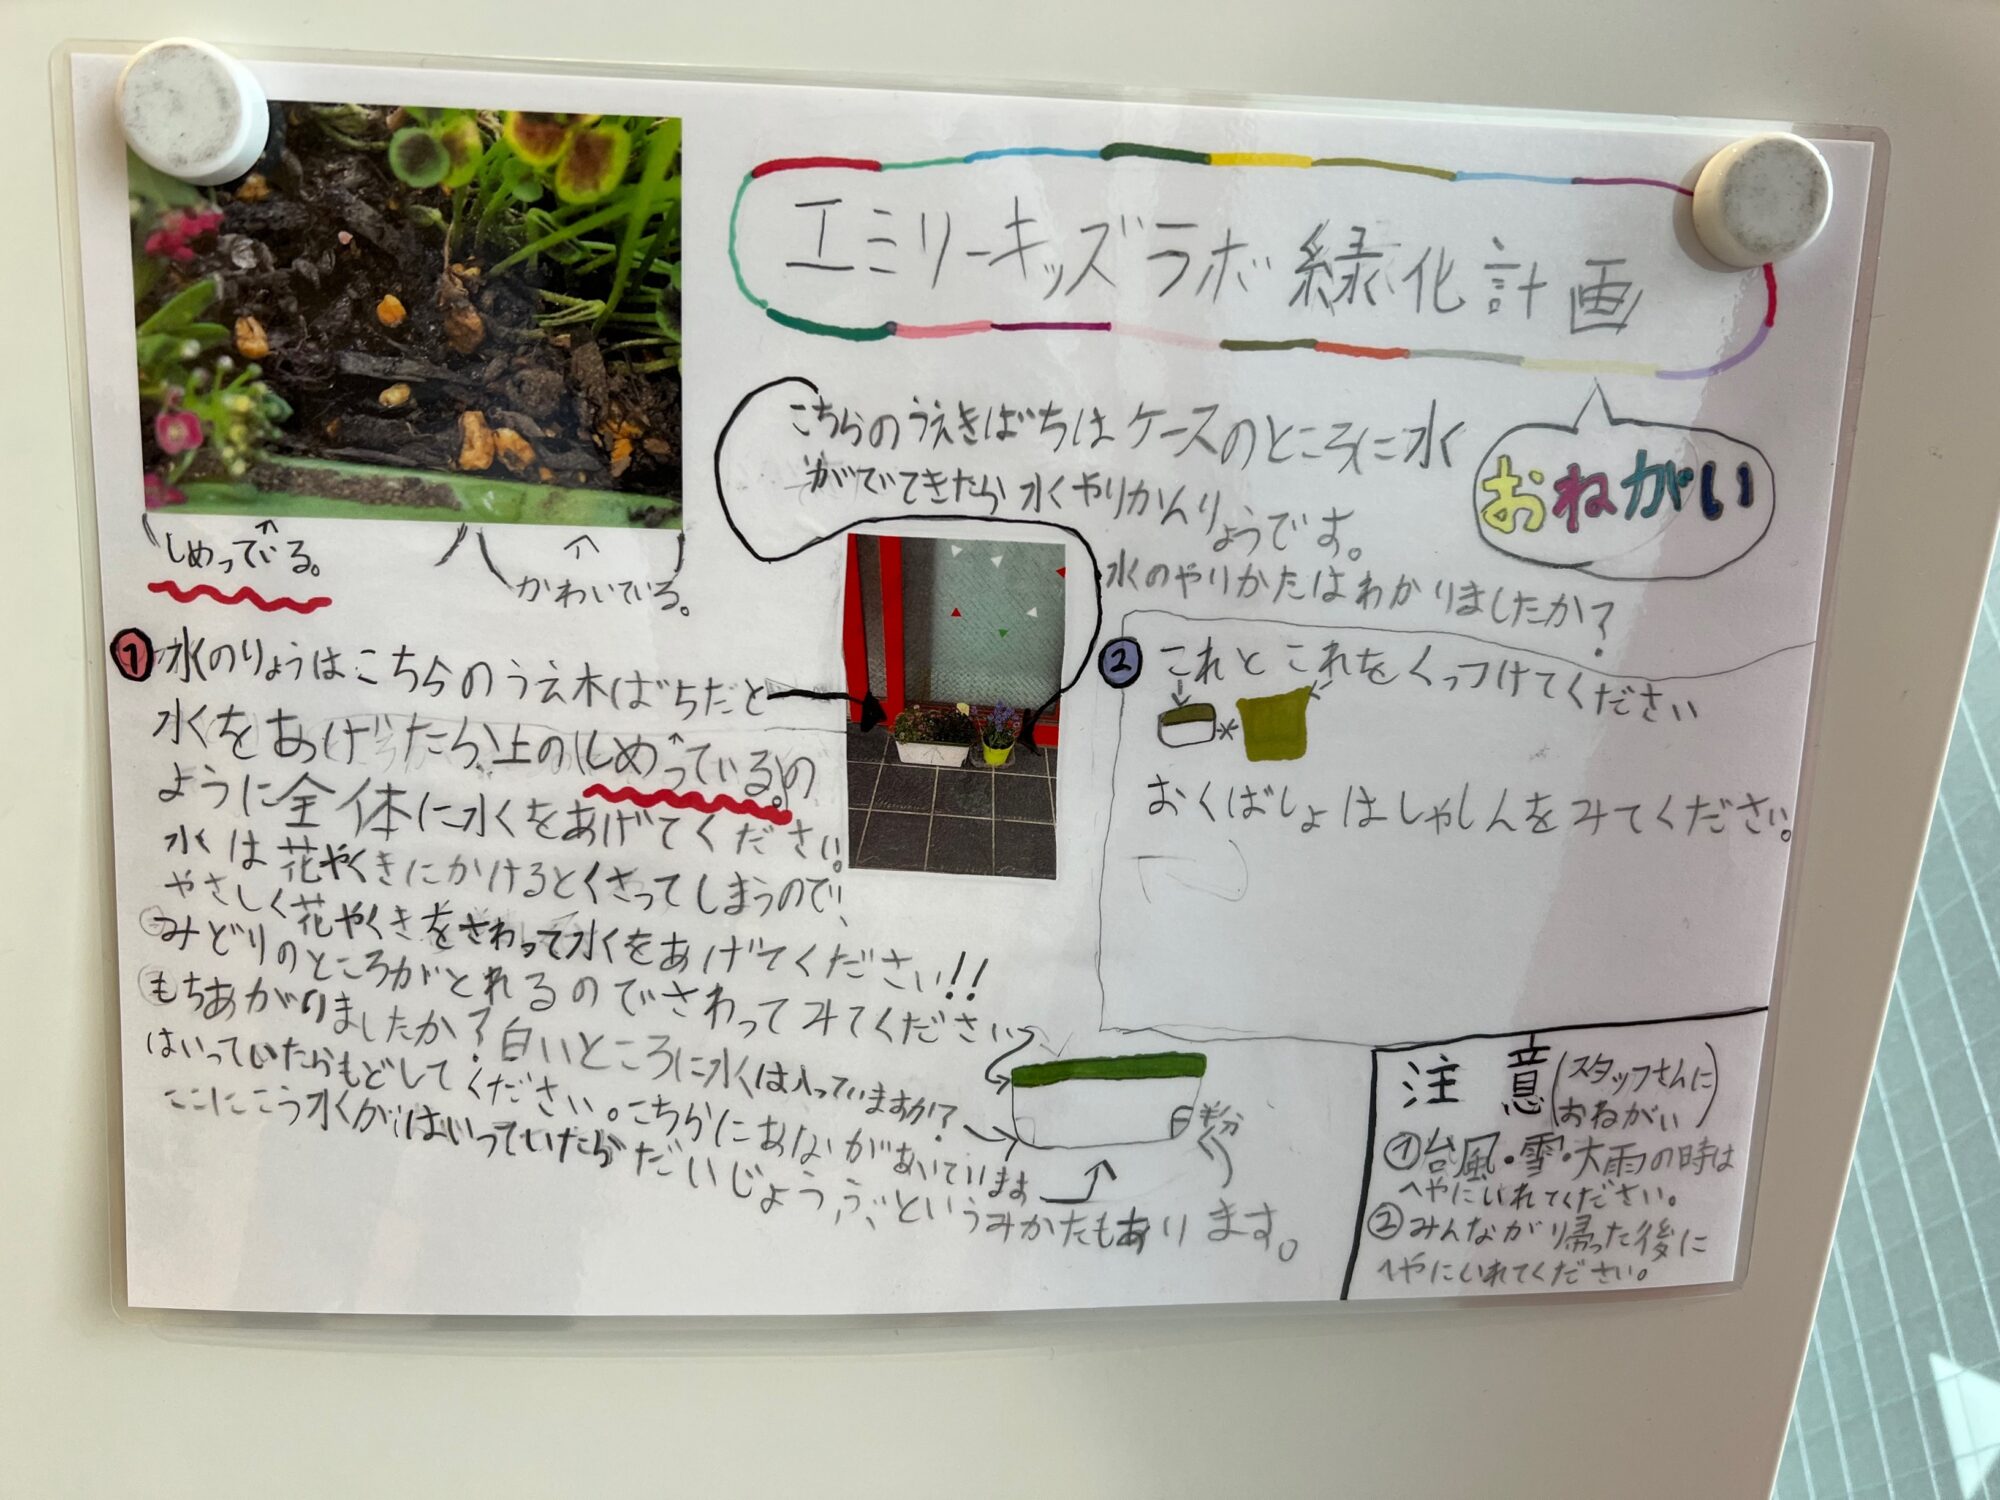 エミリーキッズラボ緑化計画
おねがい
しめっている。
かわいている。
こちらのうえきばちはケースのところに水
がでてきたら水やりかんりょうです。
水のやりかたはわかりましたか?
① 水のりょうはこちらのうえ木ばちだと
水をあげたら、上の(しめっている。)の
ように全体に水をあげてください。
水は花やくきにかけるとくさってしまうので、
やさしく花やくきをさわって水をあげてください!!
みどりのところがとれるのでさわってみてください
もちあがりましたか?白いところに水は入っていますか?
はいっていたらもどしてください。こちらにあながあいています
ここにこう水がはいっていたらだいじょうぶというみかたもあります。
白
半分
くり
② これとこれをくっつけてください
おくばしょはしゃしんをみてください。
注意(スタッフさんに
おねがい)
①台風・雪・大雨の時は
へやにいれてください。
②みんなが帰った後に
へやにいれてください。